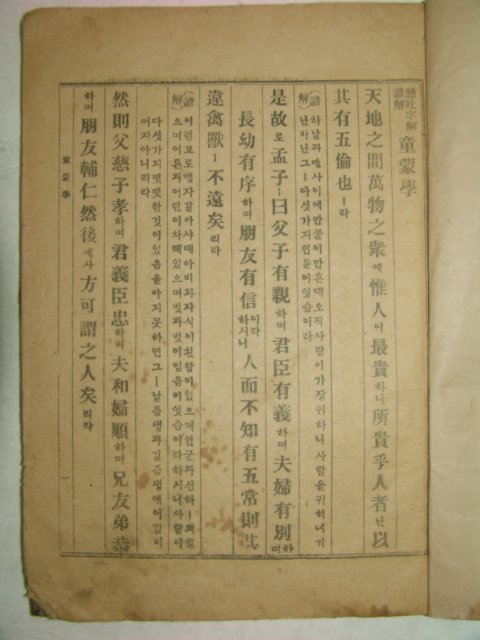 懸吐字解
諺解
童蒙學
天地之間萬物之衆에惟人이最貴하니所貴乎人者난以
其有五倫也ㅣ라
(諺解)하날과따사이에만물이만흔대오직사람이가장귀하니사람을귀히녀기
난바난그ㅣ다섯가지인륜이잇슴이라
是故로孟子ㅣ曰父子有親하며君臣有義하며夫婦有別하며
長幼有序하며朋友有信이라하시니人而不知有五常則其
違禽獸ㅣ不遠矣리라
(諺解)이런고로맹자갈아샤대아비와자식이친함이있으며인군과신하ㅣ의
으며어른과어린이차례있으며벗과벗이믿음이잇슴이라하시니사람이
다섯가지떳떳한것이있음을아지못하면그ㅣ날즘생과길즘생에어김이
머지아니리라
然則父慈子孝하며君義臣忠하며夫和婦順하며兄友弟恭
하며朋友輔仁然後에사方可謂之人矣리라
童蒙學
一